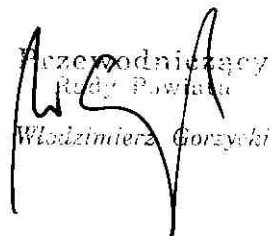 Przewodniczący
Rady Powiatu
Włodzimierz Gorzycki